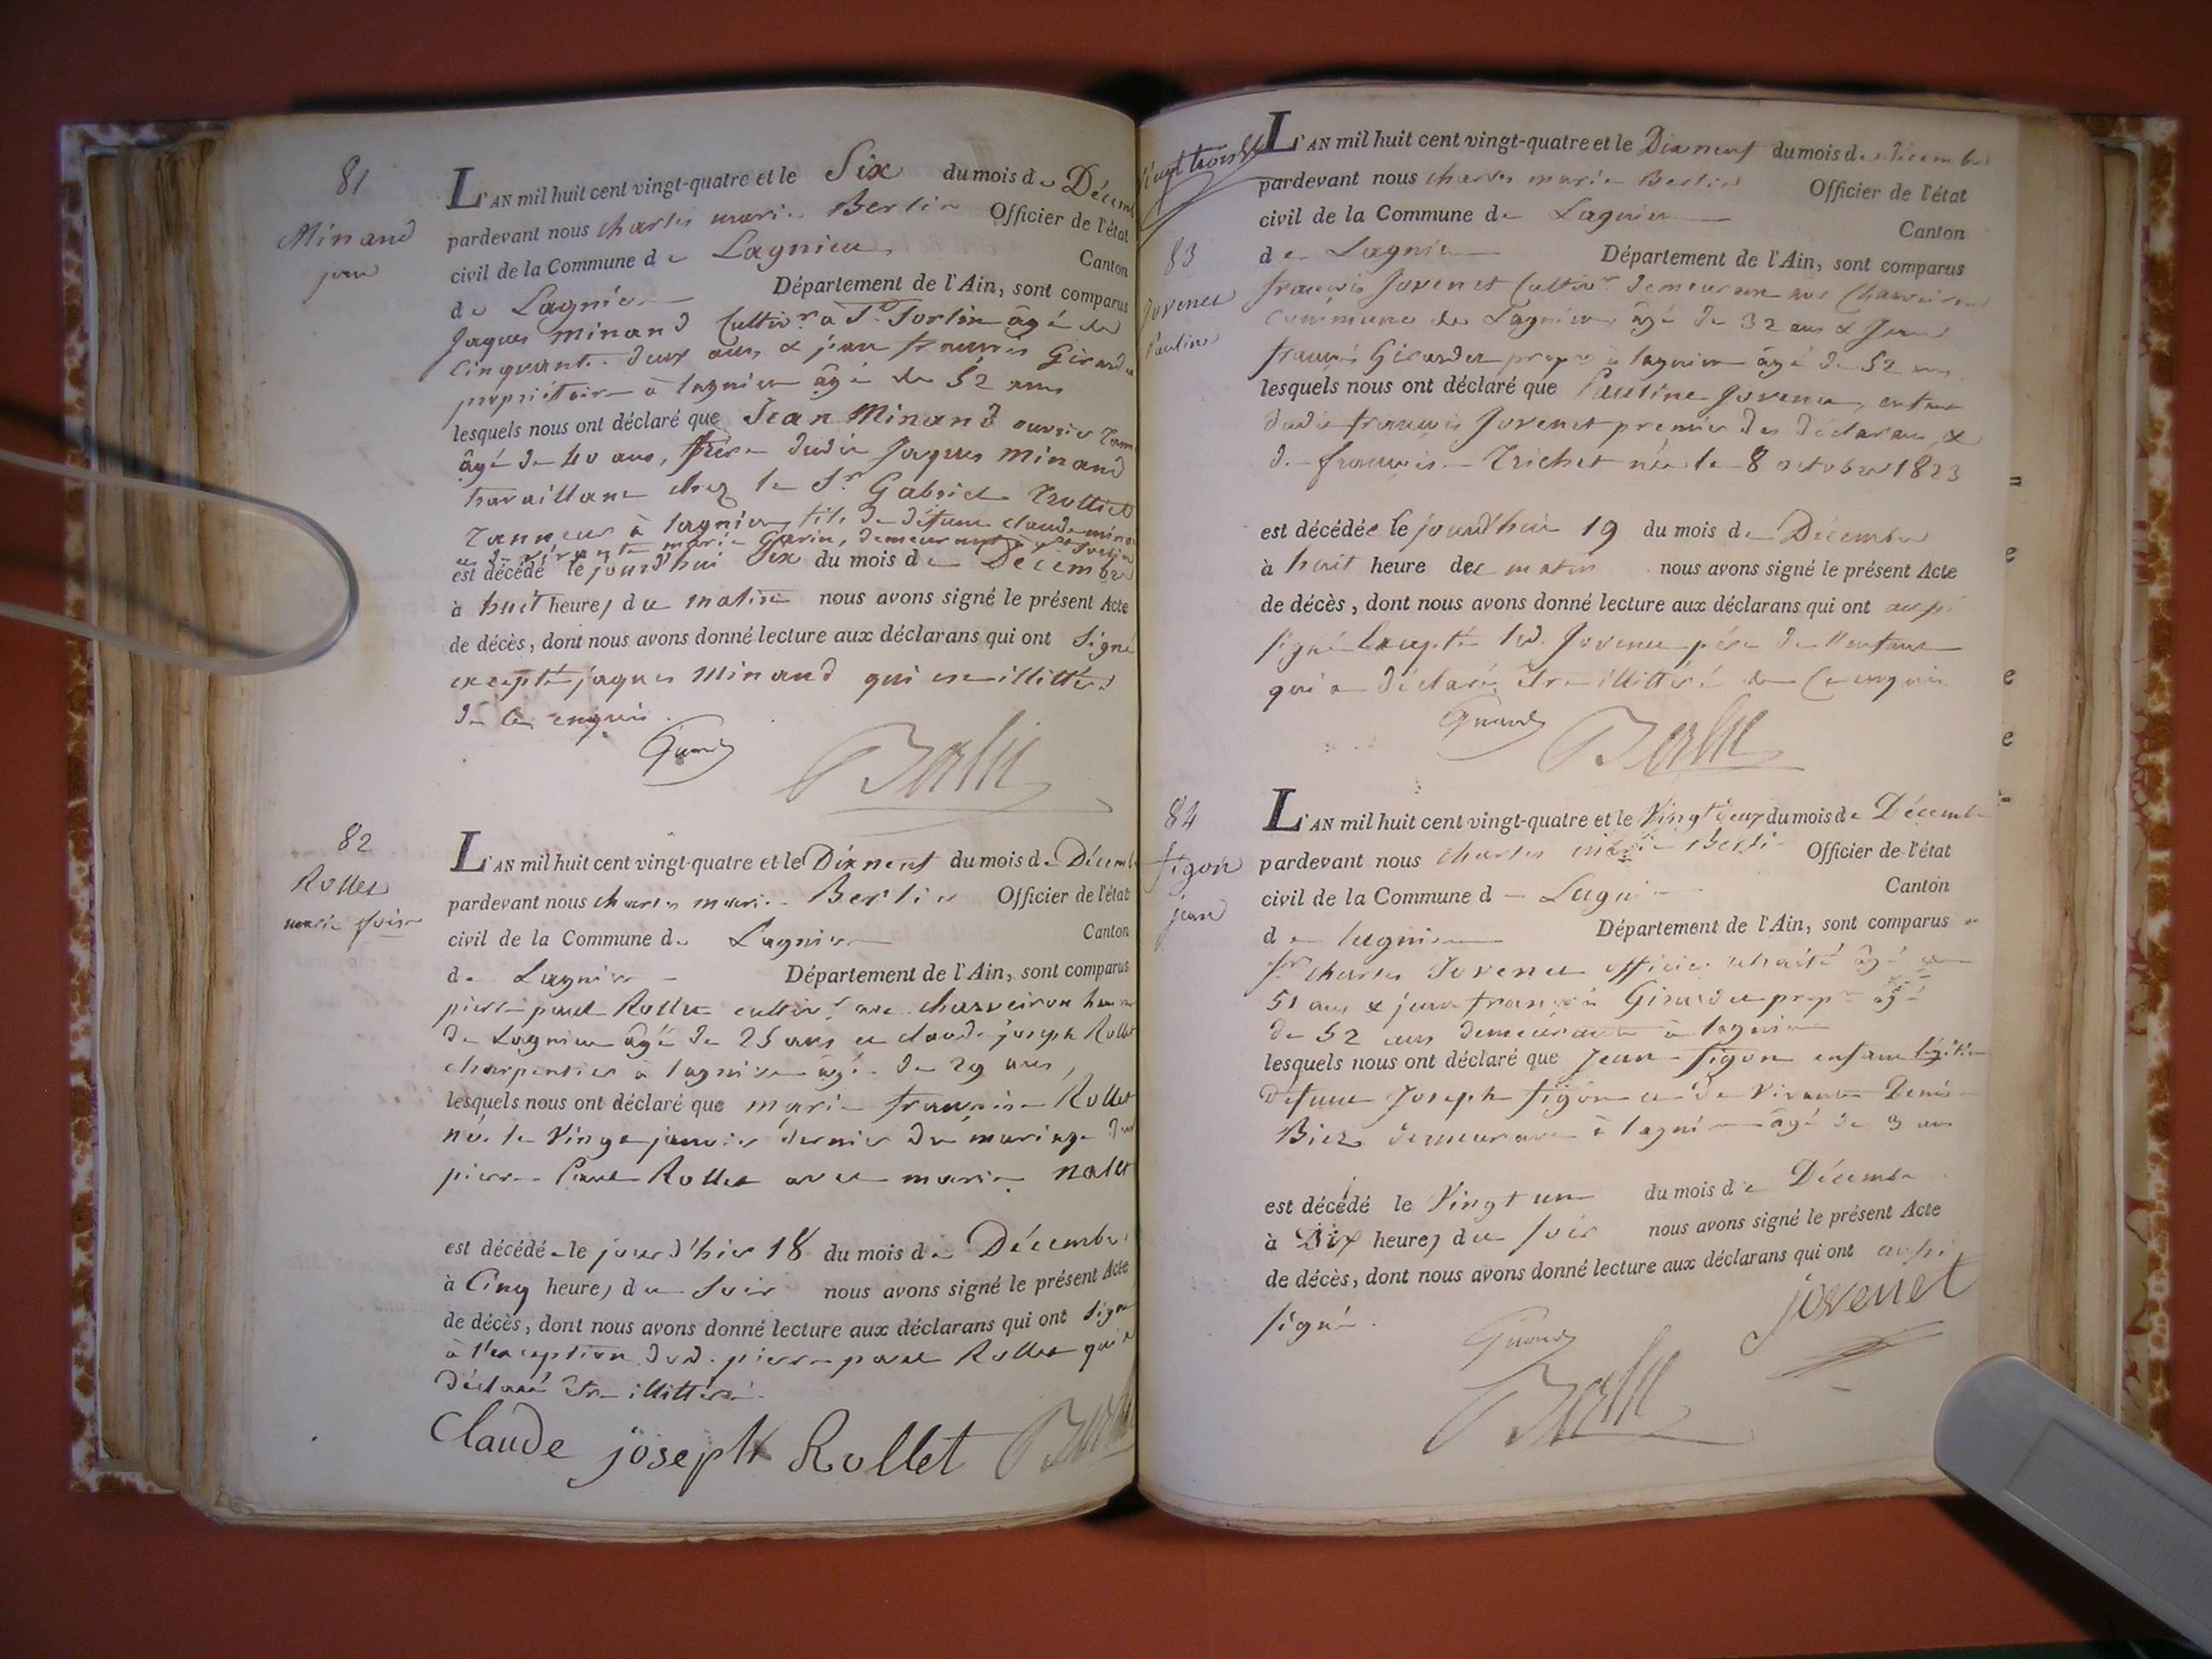 81
Minand
jean
L'AN mil huit cent vingt-quatre et le Six du mois de Décemb
pardevant nous charles marie Berlie Officier de l'état
civil de la Commune de Lagnieu Canton
de Lagnieu Département de l'Ain, sont comparus
Jaques Minand Cultivr. à St. Sorlin âgé de
Cinquante deux ans, & jean françois Girard
propriétaire à lagnieu âgé de 52 ans
lesquels nous ont déclaré que Jean Minand ouvrier tann
âgé de 40 ans, frère dudit Jaques Minand
travaillant chez le Sr Gabriel Trollies
Tanneur à lagnieu, fils de défunt claude mina
et de vivante marie Garin, demeurant à St Sorlin
est décédé le jourd'hui Six du mois de Décembre
à huit heures du matin nous avons signé le présent Acte
de décès, dont nous avons donné lecture aux déclarans qui ont Signé
excepté jaques Minand qui est illittéré
de ce enquis.
Girard Berlie
82
Rollet
marie fsoise
L'AN mil huit cent vingt-quatre et le Dixneuf du mois de Décemb
pardevant nous charles marie Berlie Officier de l'état
civil de la Commune de Lagnieu Canton
de Lagnieu Département de l'Ain, sont comparus
pierre paul Rollet cultivr. au charveiron ham
de Lagnieu âgé de 25 ans et claude joseph Rollet
charpentier à lagnieu âgé de 29 ans,
lesquels nous ont déclaré que marie françoise Rollet
née le Vingt janvier dernier du mariage dud
pierre Paul Rollet avec marie nalet
est décédée le jour d'hier 18 du mois de Décembre
à Cinq heures du Soir nous avons signé le présent Acte
de décès, dont nous avons donné lecture aux déclarans qui ont Signé
à l'exception dud. pierre paul Rollet qui a
déclaré être illittéré.
Claude joseph Rollet Berlie
Vingt trois
83
Jovenet
Pauline
L'AN mil huit cent vingt-quatre et le Dixneuf du mois de Décembre
pardevant nous charles marie Berlie Officier de l'état
civil de la Commune de Lagnieu Canton
de Lagnieu Département de l'Ain, sont comparus
françois Jovenet Cultivr. demeurant au Charveiron
Commune de Lagnieu âgé de 32 ans & Jean
françois Girardet propre à lagnieu âgé de 52 ans
lesquels nous ont déclaré que Pauline Jovenet, enfant
dudit françois Jovenet premier des déclarans, &
de françoise Trichet née le 8 octobre 1823
est décédée le jourd'hui 19 du mois de Décembre
à huit heure du matin nous avons signé le présent Acte
de décès, dont nous avons donné lecture aux déclarans qui ont aussi
signé Excepté led. Jovenet père de l'enfant
qui a déclaré être illittéré de ce enquis
Girard Berlie
84
figon
jean
L'AN mil huit cent vingt-quatre et le Vingt deux du mois de Décembre
pardevant nous charles marie Berlie Officier de l'état
civil de la Commune de Lagnieu Canton
de lagnieu Département de l'Ain, sont comparus
Sr Charles Jovenet officier retraité âgé de
51 ans & jean françois Girardet propre âgé
de 52 ans demeurants à lagnieu
lesquels nous ont déclaré que Jean figon enfant légitime
défunt Joseph figon et de Vivante Denise
Biez demeurant à lagnieu âgé de 3 ans
est décédé le Vingt un du mois de Décembre
à Dix heures du soir nous avons signé le présent Acte
de décès, dont nous avons donné lecture aux déclarans qui ont aussi
signé.
jovenet
Girard
Berlie